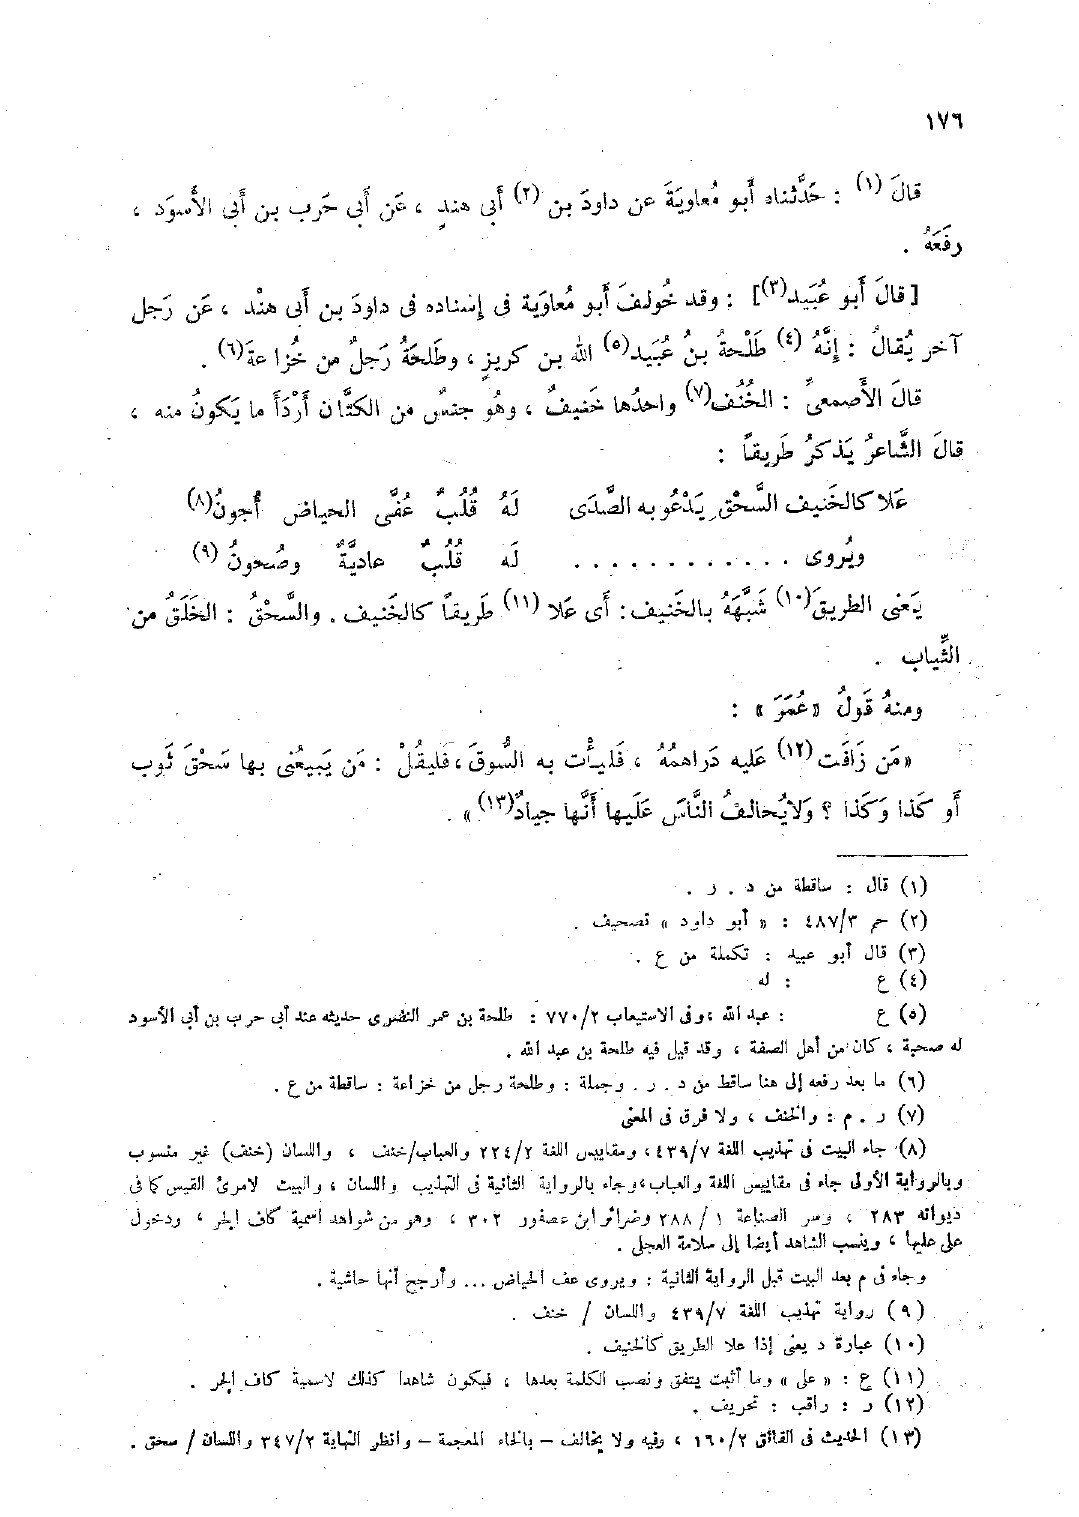 ١٧٦
قالَ (١) : حَدَّثناه أَبو مُعاويَةَ عن داودَ بن (٢) أَبى هندٍ ، عَن أَبى حَرَب بن أَبى الأَسوَد ،
رفَعَهُ .
[ قالَ أَبو عُبَيد(٣)] : وقد خُولِفَ أَبو مُعاوَية فى إسناده فى داودَ بن أَبى هنْد ، عَن رَجل
آخر يُقالُ : إنَّهُ (٤) طَلْحةُ بنُ عُبَيد(٥) الله بن كريزٍ ، وطَلحَةُ رَجلٌ من خُزاعةَ(٦) .
قالَ الأَصمعىُّ : الخُنُف(٧) واحدُها خَنيفٌ ، وهُو جنسٌ من الكتَّان أَرْدَأَ ما يَكونُ منه ،
قالَ الشَّاعرُ يَذكرُ طَريقاً :
عَلا كالخَنيف السَّحْقِ يَدْعُو به الصَّدَى لَهُ قُلُبٌ عُفَّى الحياض أُجونُ(٨)
ويُروى . . . . . . . . . . . . لَه قُلُبٌ عاديَّةٌ وصُحونُ (٩)
يَعَنى الطريقَ(١٠) شَبَّهَهُ بالخَنيف : أَى عَلا (١١) طَريقاً كالخَنيف . والسَّحْقُ : الخَلَقُ من
الثِّياب .
ومنهُ قَولُ «عُمَرَ » :
«مَن زَافَت (١٢) عَليه دَراهمُهُ ، فَليأْت به السُّوقَ ، فَليقُلْ : مَن يَبيعُنى بها سَحْقَ ثَوب
أَو كَذا وَكَذا ؟ وَلايُحالفُ النَّاسَ عَلَيها أَنَّها جيادٌ(١٣) » .
(١) قال : ساقطة من د . ر .
(٢) حم ٤٨٧/٣ : « أبو داود » تصحيف .
(٣) قال أبو عبيد : تكملة من ع .
(٤) ع : له
(٥) ع : عبد الله ،وفى الاستيعاب ٧٧٠/٢ : طلحة بن عمر النضرى حديثه عند أبى حرب بن أبى الأسود
له صحبة ، كان من أهل الصفة ، وقد قيل فيه طلحة بن عبد الله .
(٦) ما بعد رفعه إلى هنا ساقط من د . ر . وجملة : وطلحة رجل من خزاعة : ساقطة من ع .
(٧) ر . م : والخنف ، ولا فرق فى المعنى
(٨) جاء البيت فى تهذيب اللغة ٤٣٩/٧ ، ومقاييس اللغة ٢٢٤/٢ والعباب/خنف ، واللسان (خنف) غير منسوب
وبالرواية الأولى جاء فى مقاييس اللغة والعباب،وجاء بالرواية الثانية فى التهذيب واللسان ، والبيت لامرئ القيس كما فى
ديوانه ٢٨٣ ، وسر الصناعة ١ / ٢٨٨ وضرائر ابن عصفور ٣٠٢ ، وهو من شواهد اسمية كاف الجر ، ودخول
على عليها ، وينسب الشاهد أيضا إلى سلامة العجل .
وجاء فى م بعد البيت قبل الرواية الثانية : ويروى عف الحياض ... وأرجح أنها حاشية .
(٩) رواية تهذيب اللغة ٤٣٩/٧ واللسان / خنف .
(١٠) عبارة د يعنى إذا علا الطريق كالخنيف .
(١١) ع : « على » وما أثبت يتفق ونصب الكلمة بعدها ، فيكون شاهدا كذلك لاسمية كاف الجر .
(١٢) ر : راقب : تحريف .
(١٣) الحديث فى الفائق ١٦٠/٢ ، وفيه ولا يخالف – بالخاء المعجمة – وانظر النهاية ٣٤٧/٢ واللسان / سحق .